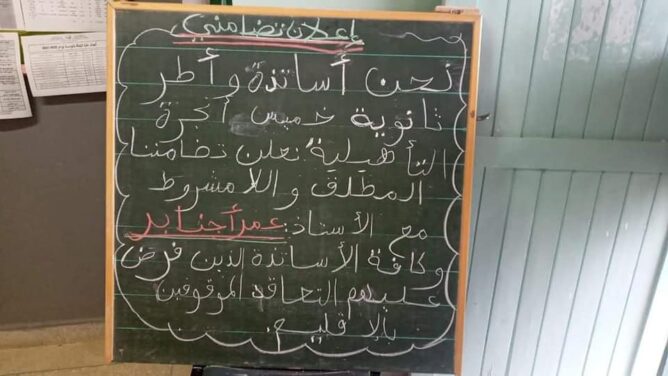 إعلان تضامني
نحن أساتذة و أطر
ثانوية خميس أنجرة
التأهيلية نعلن تضامننا
المطلق و اللا مشروط
مع الأستاذ: عمر أجنابر
وكافة الأساتذة الذين فرض
عليهم التعاقد الموقوفين
بالإقليم.